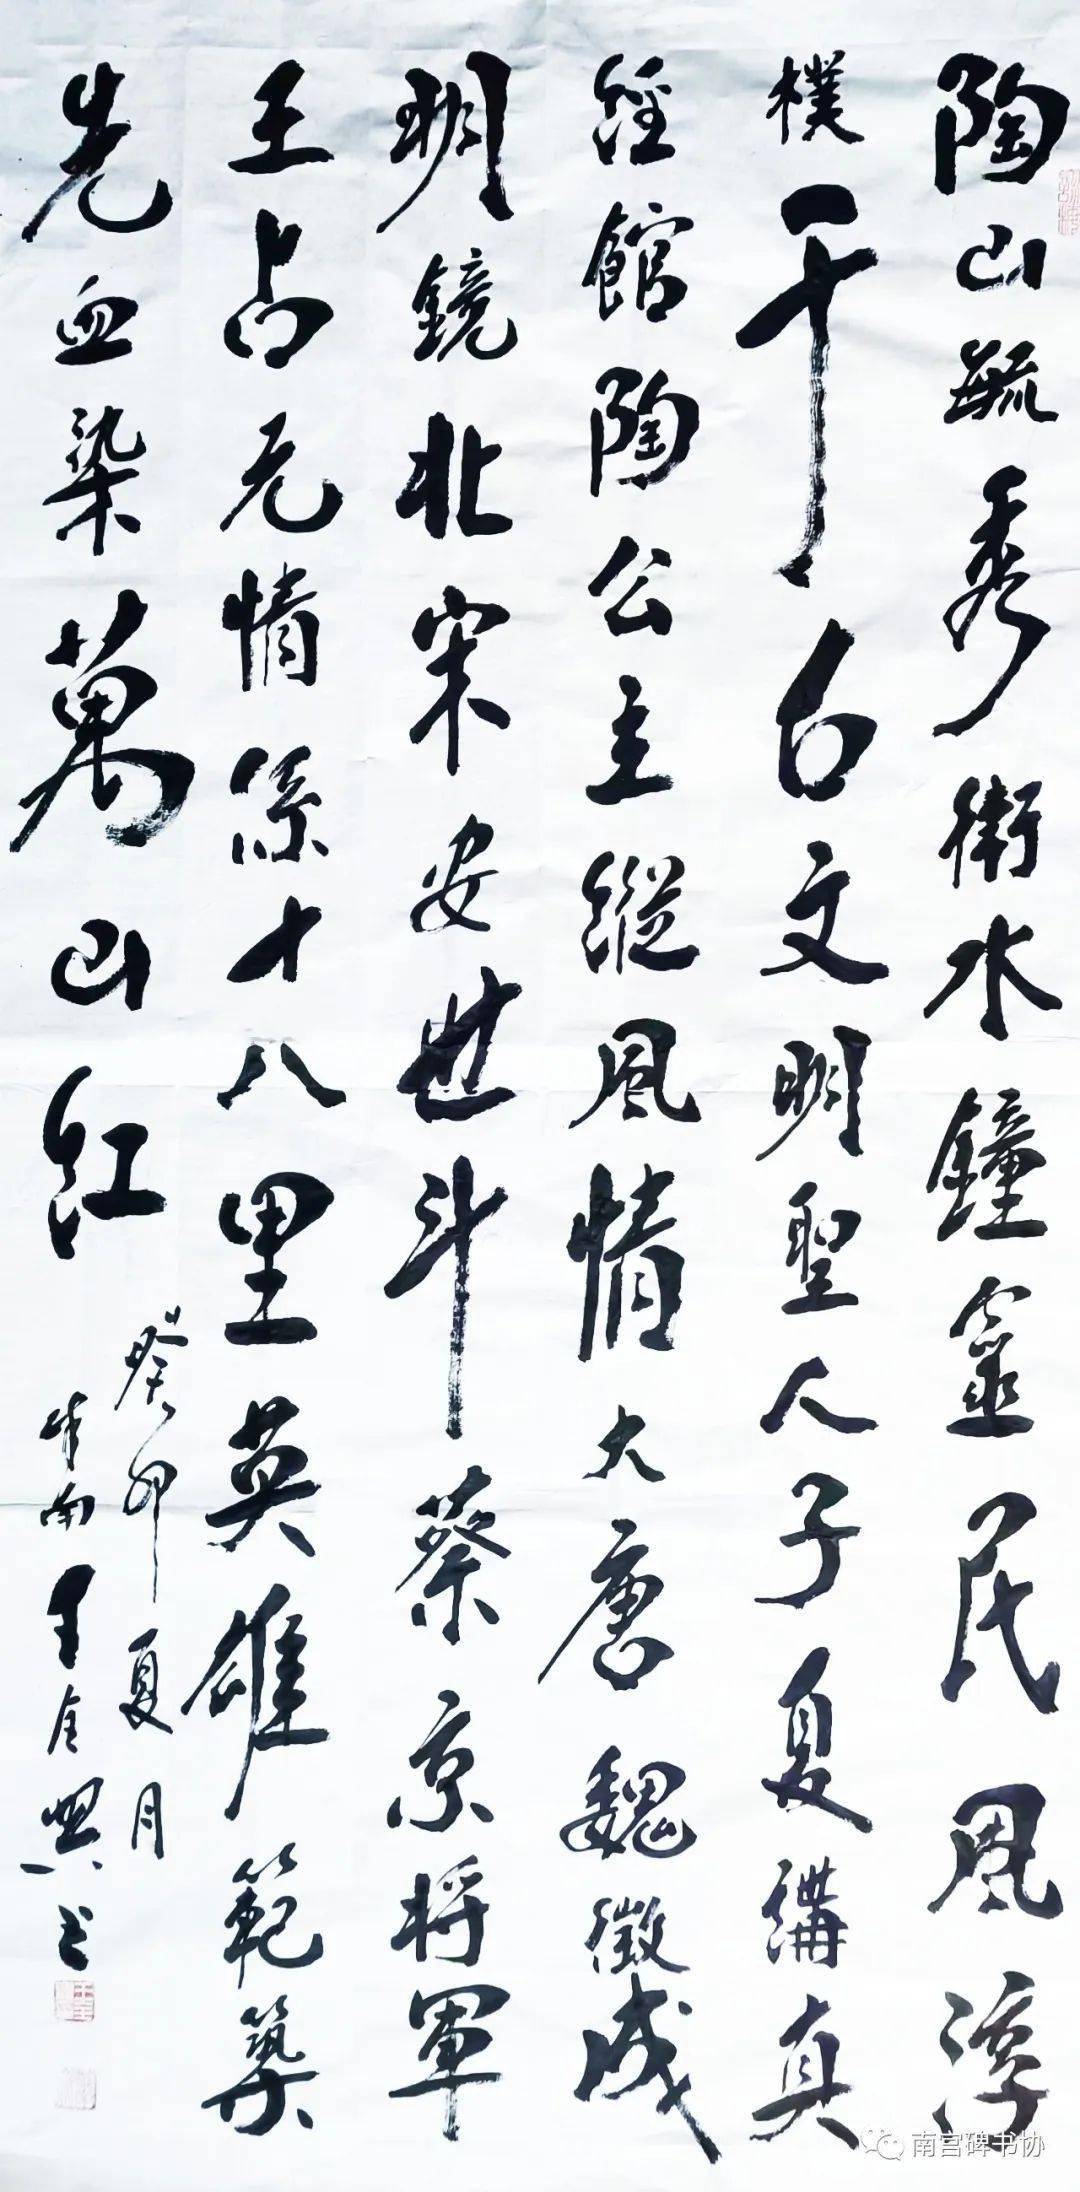 陶山毓秀衛水鐘靈民風淳
樸千古文明聖人子夏講真
經館陶公主縱風情大唐魏徵成
明鏡北宋安世斗蔡京將軍
王占元情係十八里英雄範築
先血染萬山紅
癸卯夏月
王金興書
南宫碑书协